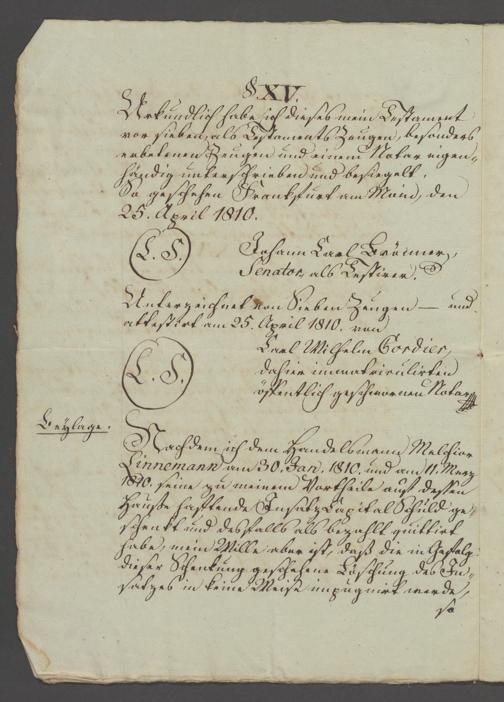 §. XV.
Urkundlich habe ich dieses mein Testament
vor sieben, als Testaments Zeugen, besonders
erbetenen Zeugen und einem Notar eigen-
händig unterschrieben und besiegelt.
So geschehen Frankfurt am Main, den
25. April 1810.
L. S.
Johann Carl Brönner,
Senator, als Testirer.
Unterzeichnet von Sieben Zeugen — und
attestirt am 25. April 1810. von
L. S.
Carl Wilhelm Cordier,
dahier immatriculirten
öffentlich geschworenen Notar
Beylage.
Nachdem ich dem Handelsmann Melchior
Linnemann am 30. Jan. 1810. und am 11. Merz
1810. seine zu meinem Vortheile auf dessen
Hause hafftende InsatzCapital Schuld ge-
schenkt und desfalls als bezahlt quittirt
habe, mein Wille aber ist, daß die in Gefolg
dieser Schenkung geschehene Löschung des In-
satzes in keine Weise impugnirt werde,
so